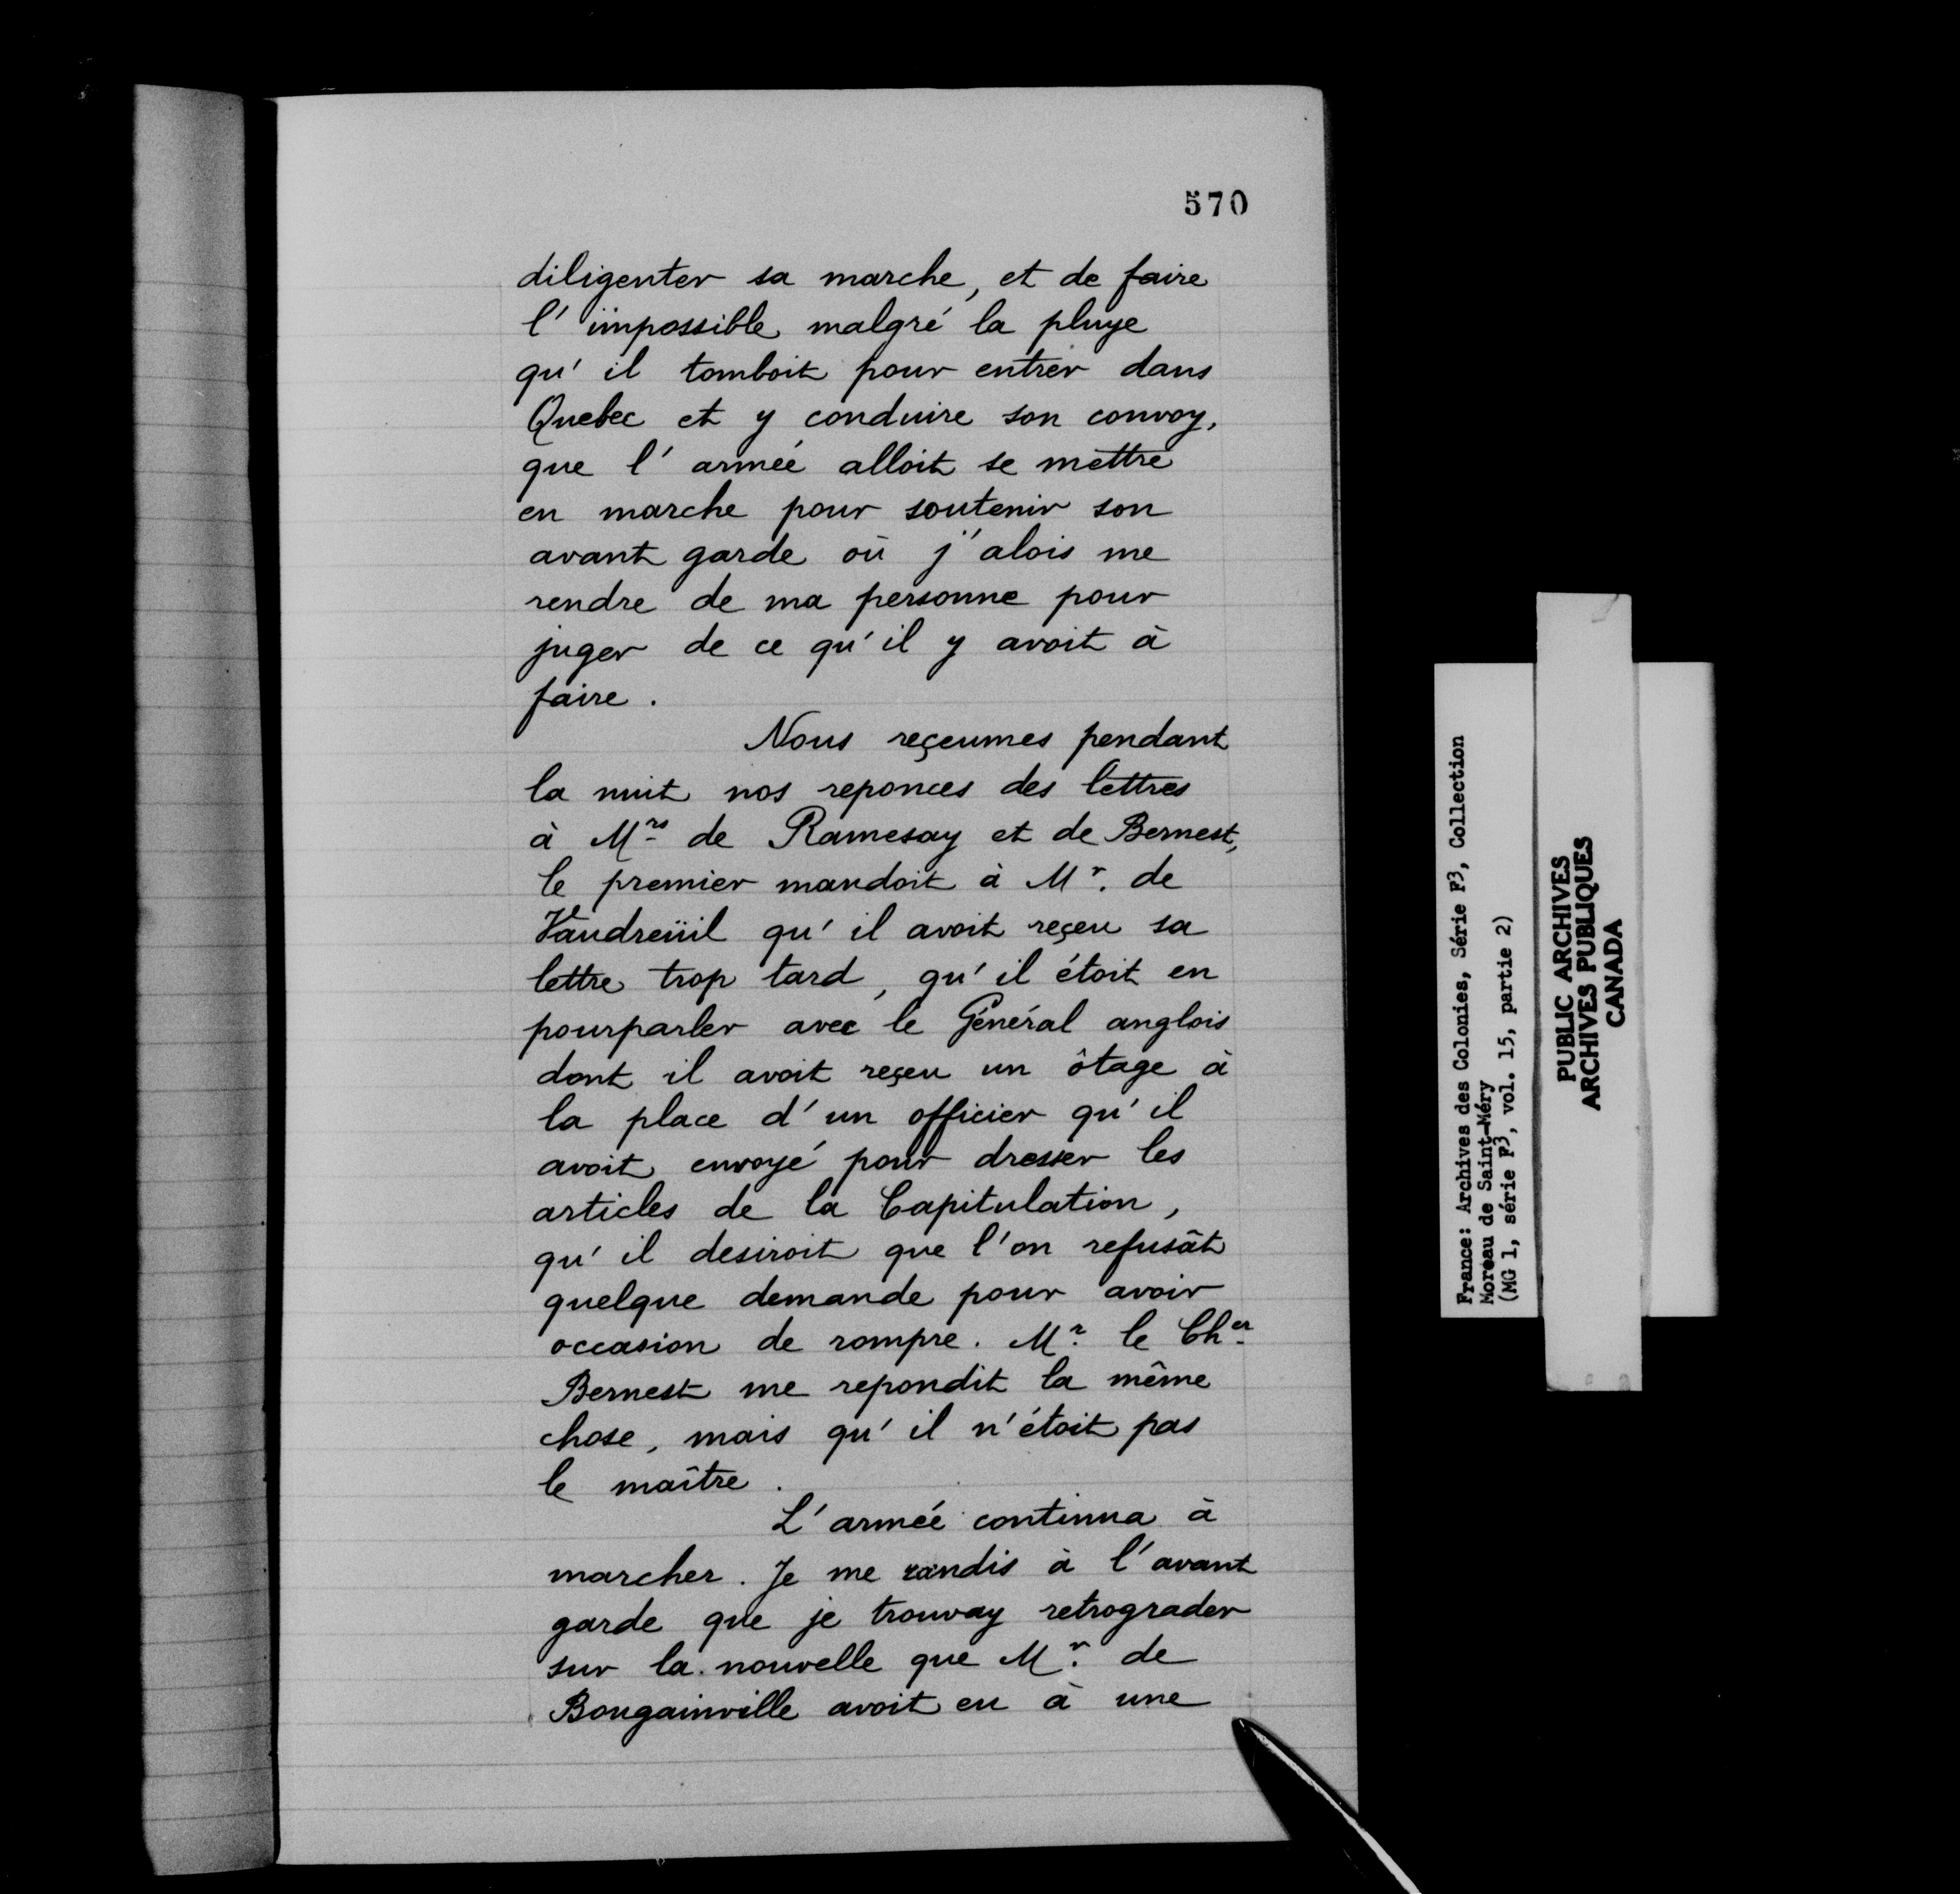 570
diligenter sa marche, et de faire
l' impossible malgré la pluye
qu' il tomboit pour entrer dans
Quebec et y conduire son convoy,
que l' armée alloit se mettre
en marche pour soutenir son
avant garde où j'alois me
rendre de ma personne pour
juger de ce qu'il y avoit à
faire.
Nous reçeumes pendant
la nuit nos reponces des lettres
à Mrs de Ramesay et de Bernest,
le premier mandoit à Mr. de
Vaudreüil qu' il avoit reçeu sa
lettre trop tard, qu' il étoit en
pourparler avec le Général anglois
dont il avoit reçeu un ôtage à
la place d'un officier qu' il
avoit envoyé pour dresser les
articles de la Capitulation,
qu' il desiroit que l'on refusât
quelque demande pour avoir
occasion de rompre. Mr. le Cher
Bernest me repondit la même
chose, mais qu' il n'étoit pas
le maître.
L'armée continua à
marcher. Je me randis à l'avant
garde que je trouvay retrograder
sur la nouvelle que Mr. de
Bougainville avoit eu à une
France: Archives des Colonies, Série F3, Collection
Moreau de Saint-Méry
(MG 1, série F3, vol. 15, partie 2)
PUBLIC ARCHIVES
ARCHIVES PUBLIQUES
CANADA